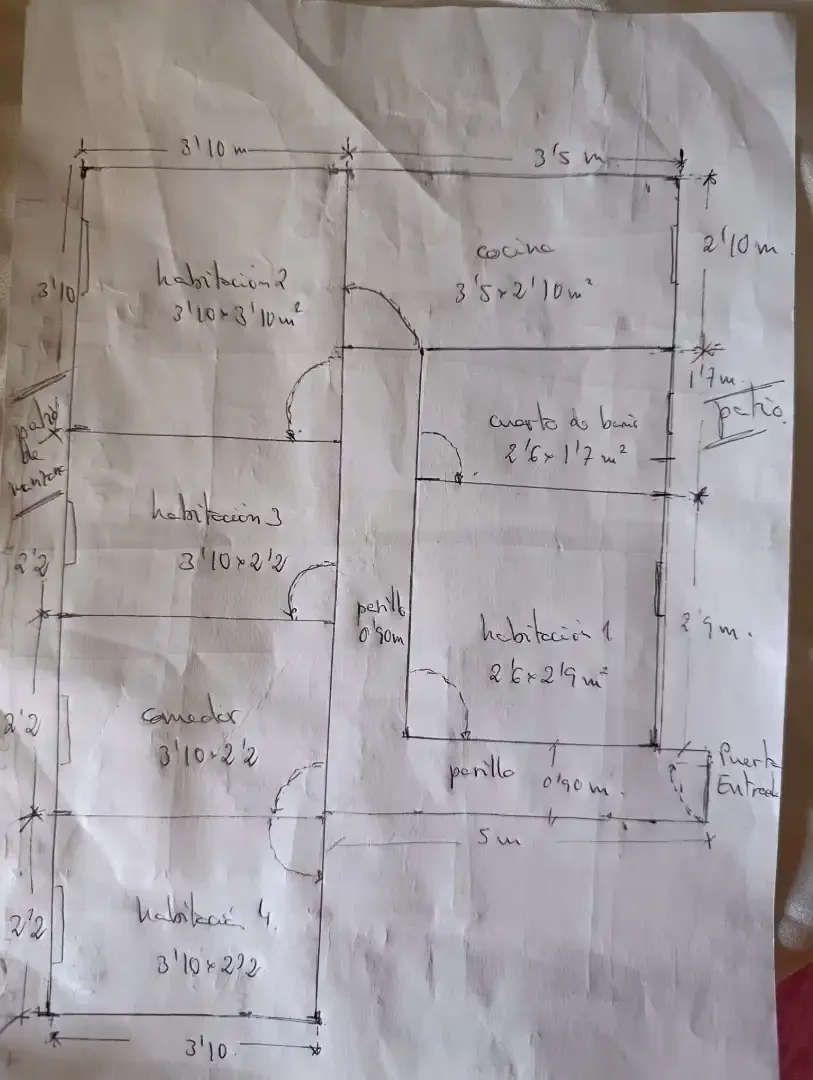 3'10 m
3'5 m
2'10 m.
cocina
3'5 x 2'10 m²
habitación 2
3'10 x 3'10 m²
3'10
1'7 m
patio.
patio
de
cuarto de baño
2'6 x 1'7 m²
habitación 3
3'10 x 2'2
2'2
pasillo
0'90m
habitación 1
2'6 x 2'9 m²
2'9 m.
comedor
3'10 x 2'2
2'2
pasillo
0'90 m.
Puerta
Entrada
5 m
habitación 4.
3'10 x 2'2
2'2
3'10.